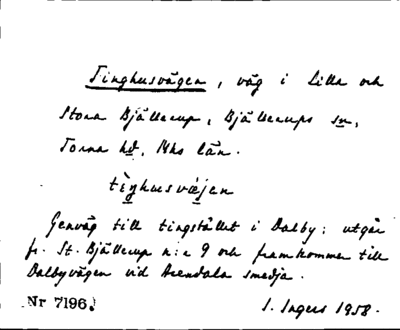 Tinghusvägen, väg i Lilla och
Stora Bjällerup, Bjällerups sn,
Torna hd, Mhs län.
tiŋhusväjen
Genväg till tingstället i Dalby: utgår
fr. St. Bjällerup n:r 9 och framkommer till
Dalbyvägen vid Arendala smedja.
Nr 7196.
I. Ingers 1958.